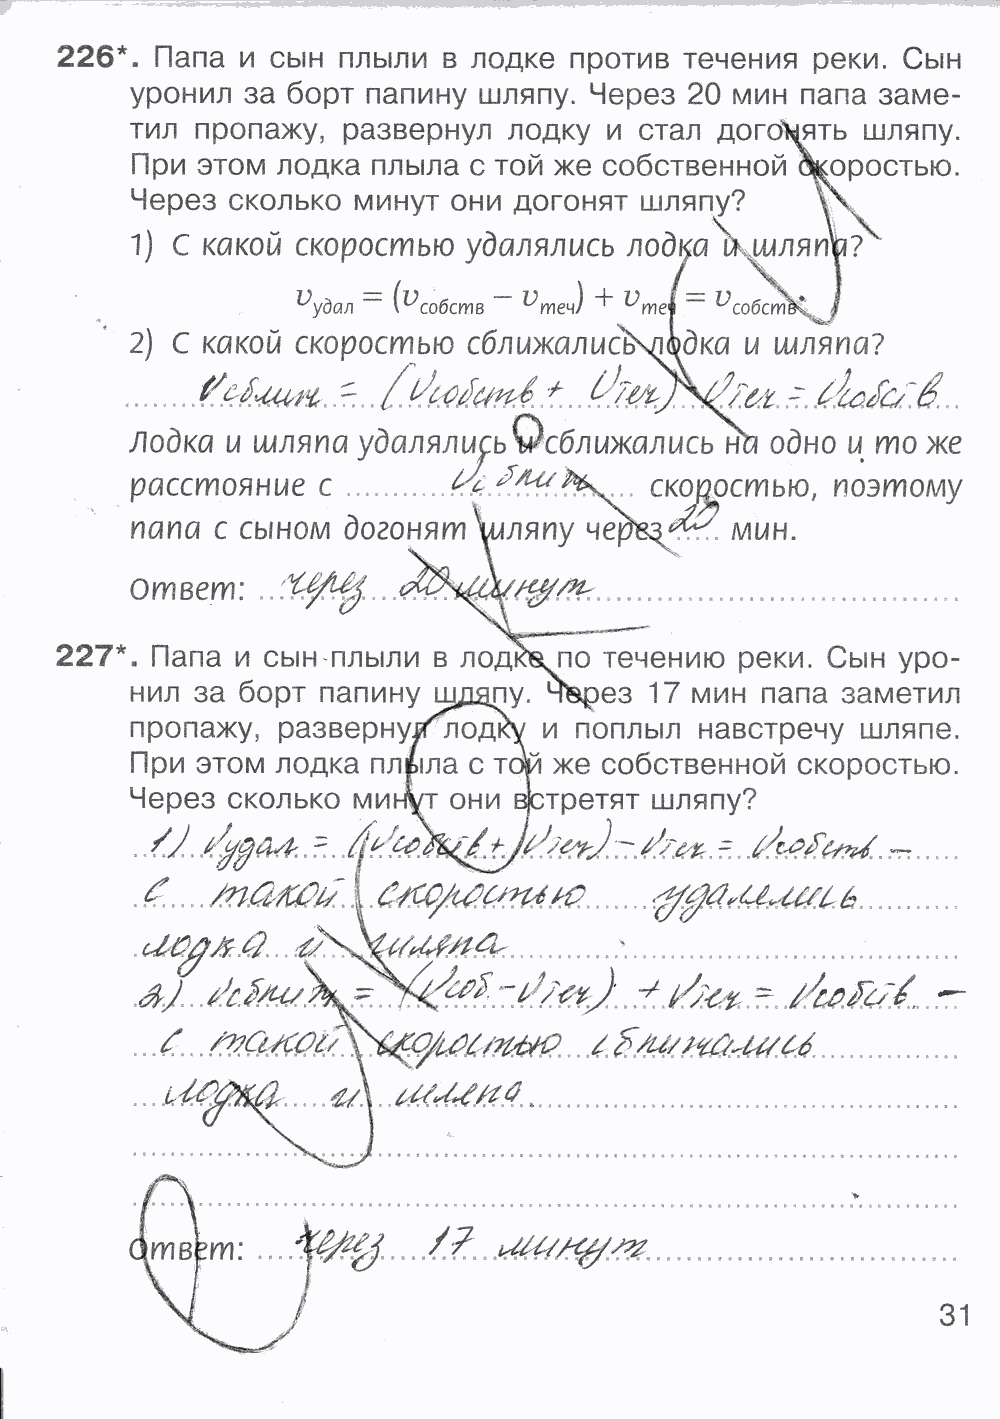 226*. Папа и сын плыли в лодке против течения реки. Сын
уронил за борт папину шляпу. Через 20 мин папа заме-
тил пропажу, развернул лодку и стал догонять шляпу.
При этом лодка плыла с той же собственной скоростью.
Через сколько минут они догонят шляпу?
1) С какой скоростью удалялись лодка и шляпа?
υудал = (υсобств – υтеч) + υтеч = υсобств.
2) С какой скоростью сближались лодка и шляпа?
Vсближ = (Vсобств + Vтеч) - Vтеч = Vсобств
Лодка и шляпа удалялись и сближались на одно и то же
расстояние с Vсближ скоростью, поэтому
папа с сыном догонят шляпу через 20 мин.
Ответ: через 20 минут
227*. Папа и сын плыли в лодке по течению реки. Сын уро-
нил за борт папину шляпу. Через 17 мин папа заметил
пропажу, развернул лодку и поплыл навстречу шляпе.
При этом лодка плыла с той же собственной скоростью.
Через сколько минут они встретят шляпу?
1) Vудал = (Vсобств + Vтеч) – Vтеч = Vсобств –
с такой скоростью удалелись
лодка и шляпа
2) Vсближ = (Vсоб - Vтеч) + Vтеч = Vсобств –
с такой скоростью сближались
лодка и шляпа.
Ответ: через 17 минут
31